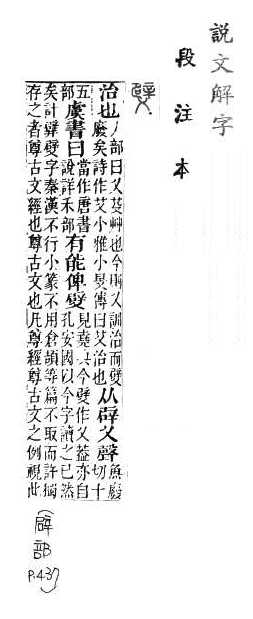 說文解字
段注本
治也丿部曰乂芟艸也今則乂訓治而廢矣詩作艾小雅小旻傳曰艾治也从辟乂聲魚廢切十
五部虞書曰當作唐書說詳禾部有能俾見堯典今作乂葢亦自孔安國以今字讀之已然
矣計字秦漢不行小篆不用倉頡等篇不取而許獨
存之者尊古文經也尊古文也凡尊經尊古文之例視此
辟部
P.437